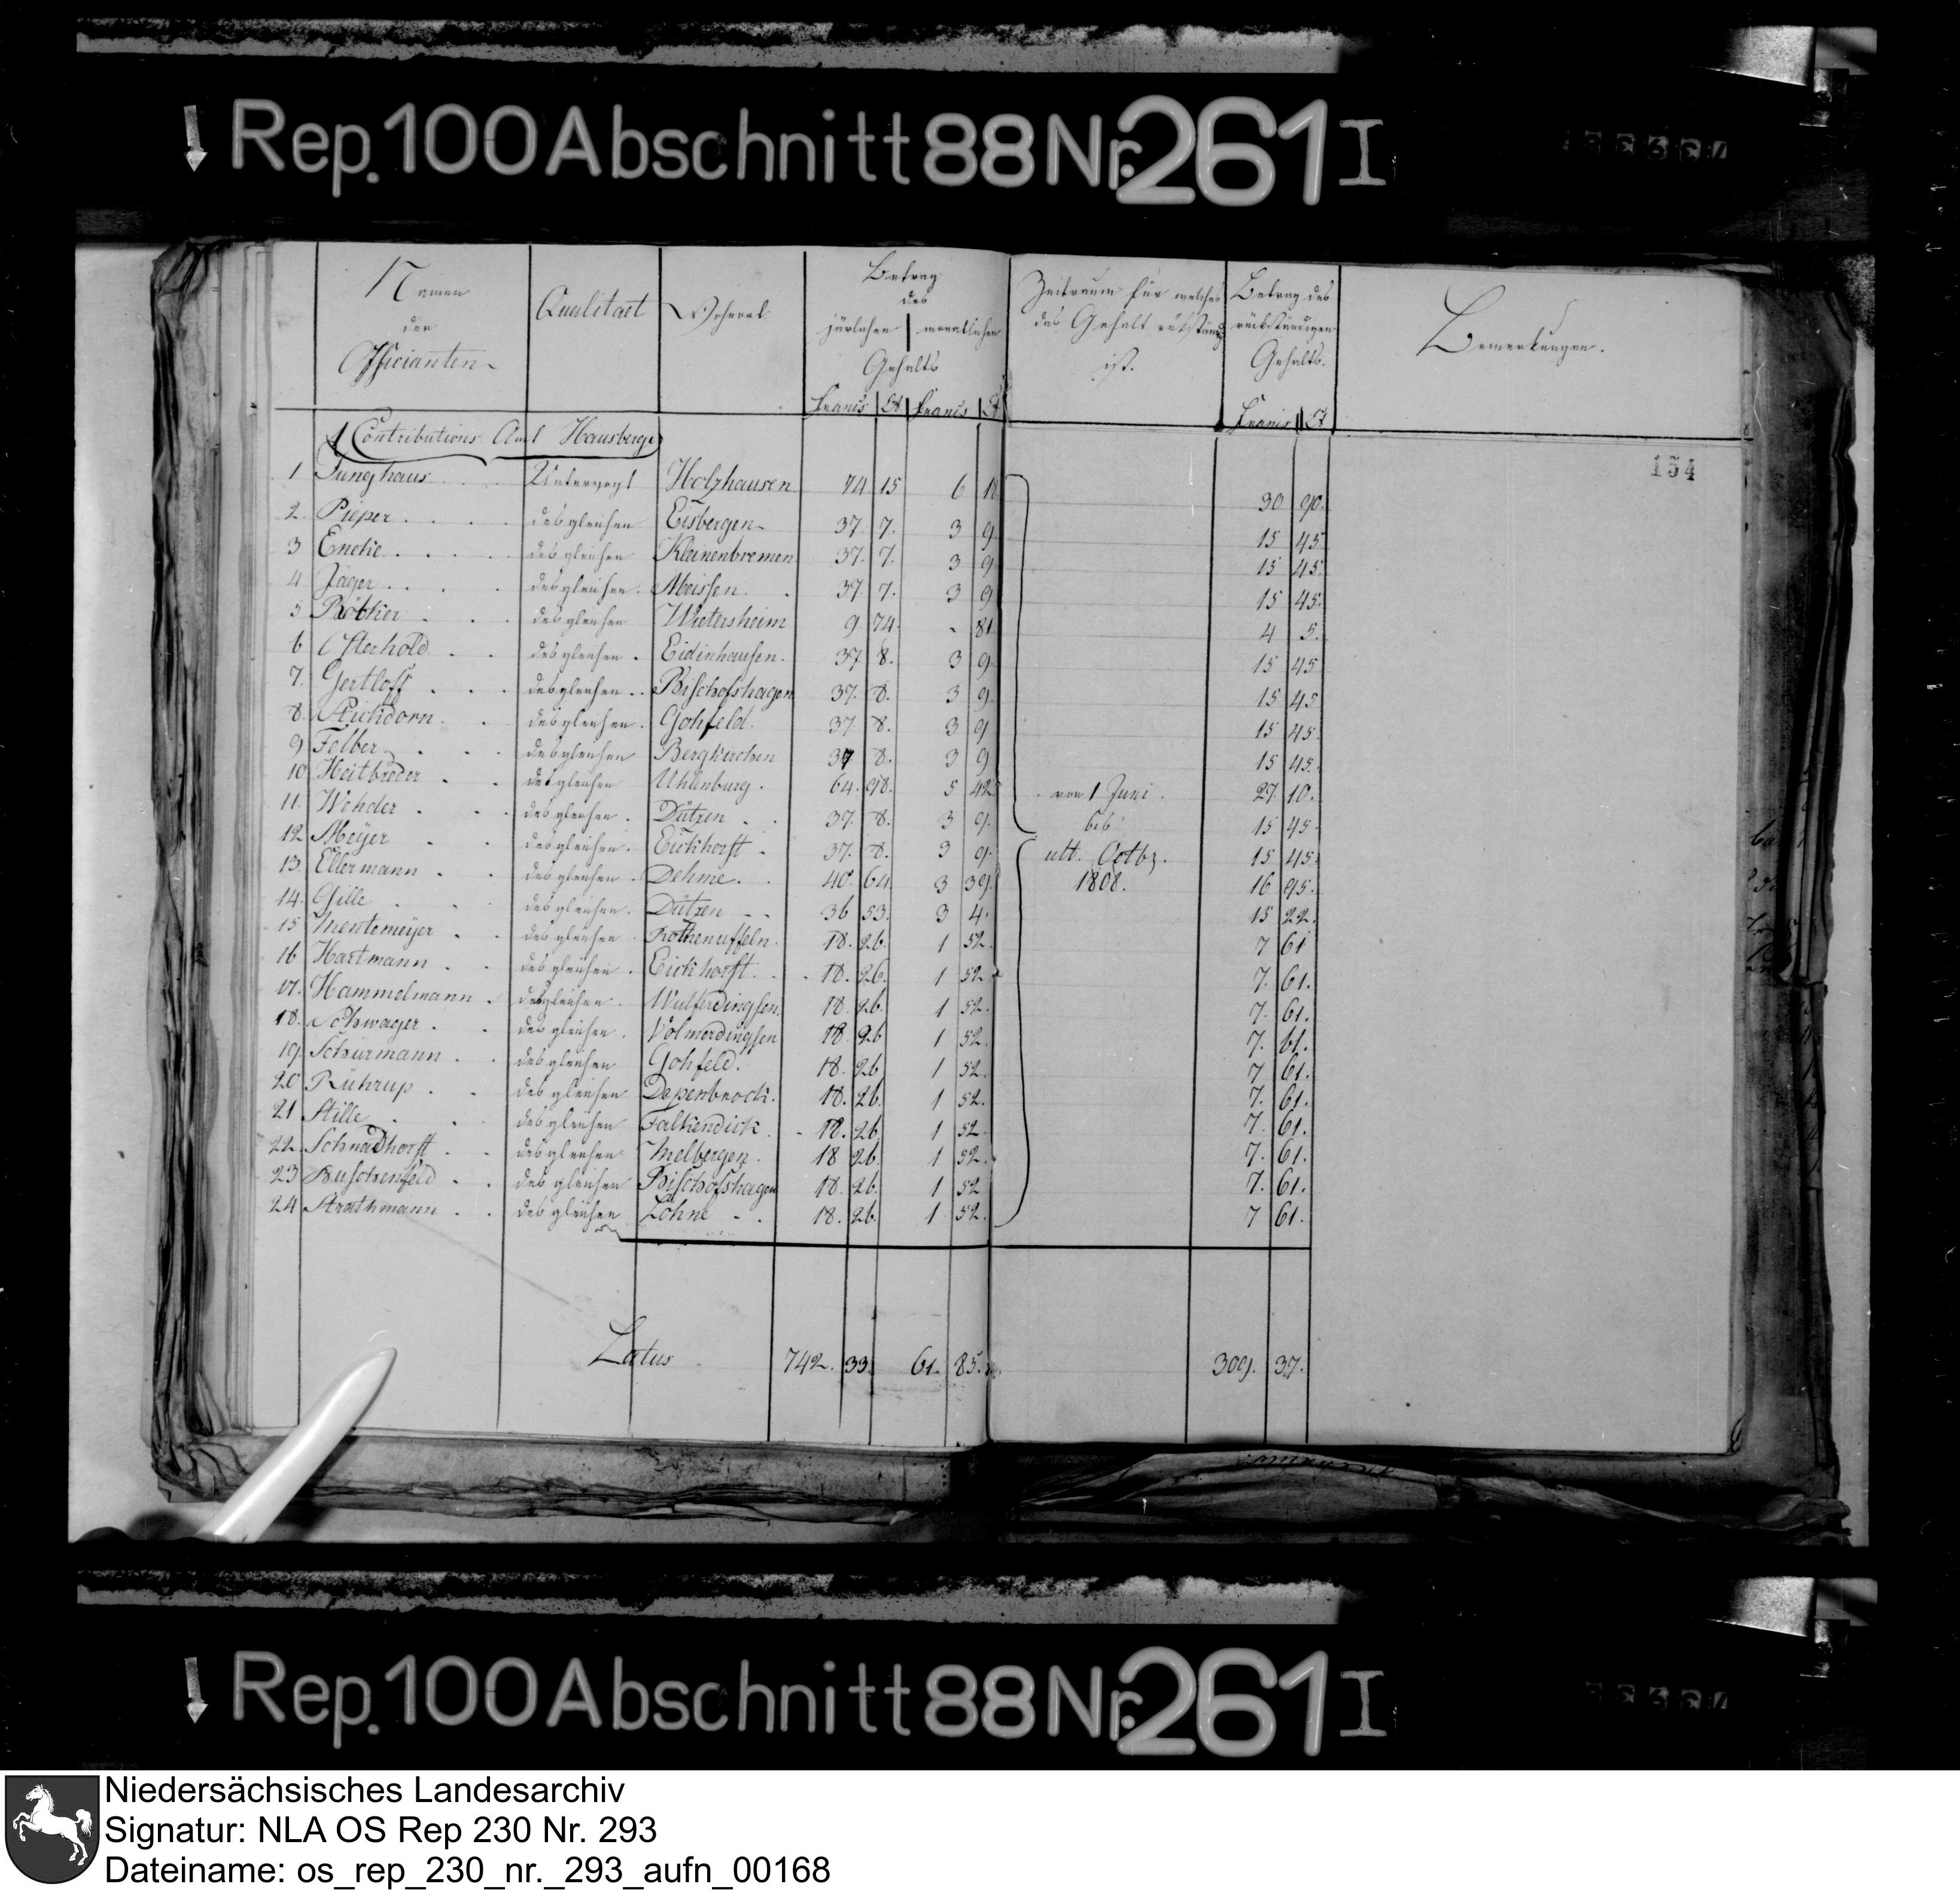 Rep. 100 Abschnitt 88 Nr. 261 I
Namen der Officianten
Qualitaet
Wohnort
Betrag des
järlichen monatlichen
Gehalts
Francs Ct Francs Ct
Zeitraum für welches
das Gehalt rükständig
ist.
Betrag des
rückständigen
Gehalts.
Francs Ct
Bemerkungen.
154
Contributions Amt Hausberge
1 Junghaus Untervogt Holzhausen 74 15 6 18 30 90.
2. Pieper desgleichen Eisbergen 37. 7. 3 9. 15 45
3 Encke desgleichen Kleinenbremen 37. 7. 3 9 15 45.
4 Jäger desgleichen Meissen. 37. 7. 3 9 15 45.
5 Rötker desgleichen Wietersheim 9 74. - 81 4 5.
6 Osterhold desgleichen Eidinhausen. 37 8. 3 9. 15 45
7. Gertloff desgleichen Bischofshagen 37. 8. 3 9. 15 45
8. Stickdorn desgleichen Gohfeld. 37 8. 3 9 15 45.
9 Felber desgleichen Bergkirchen 37 8. 3 9 15 45.
10 Heitbreder desgleichen Uhlenburg. 64. 98. 5 42 27. 10.
11. Wehder desgleichen Dützen 37. 8. 3 9. 15 45.
12 Meyer desgleichen Eickhorst 37. 8. 3 9. 15 45.
13. Ellermann desgleichen Dehme. 40. 64 3 39. 16 95.
14. Gille desgleichen Dützen 36 53. 3 4. 15 22.
15 Mentemeyer desgleichen Rothenuffeln. 18. 26. 1 52. 7 61
16 Hartmann desgleichen Eickhorst 18. 26. 1 52. 7. 61.
17. Hammelmann desgleichen Wulferdingsen. 18 26. 1 52. 7. 61.
18. Schwager desgleichen Volmerdingsen 18. 26 1 52. 7. 61.
19. Schürmann desgleichen Gohfeld. 18. 26 1 52. 7 61.
20 Rührup desgleichen Depenbrock. 18. 26. 1 52. 7. 61.
21 Stille desgleichen Falkendick 18. 26. 1 52. 7. 61.
22. Schnadhorst desgleichen Melbergen. 18 26. 1 52. 7. 61.
23 Buschenfeld desgleichen Bischofshagen 18. 26. 1 52 7. 61.
24 Strathmann desgleichen Löhne 18. 26. 1 52. 7 61.
von 1 Juni
bis
ult. Octbr.
1808.
Latus 742. 33. 61. 85. 309. 37.
Rep. 100 Abschnitt 88 Nr. 261 I
Niedersächsisches Landesarchiv
Signatur: NLA OS Rep 230 Nr. 293
Dateiname: os_rep_230_nr._293_aufn_00168